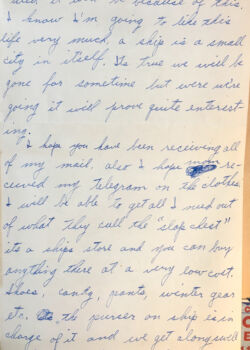 because of this,
I know I'm going to like this
life very much, a ship is a small
city in itself. Its true we will be
gone for sometime but were we're
going it will prove quite interest-
ing.
I hope you have been receiving all
of my mail, also I hope mom re-
ceived my telegram on the clothes
I will be able to get all I need out
of what they call the "slop chest"
its a ships store and you can buy
anything there at a very low cost.
Shoes, candy, pants, winter gear
etc. the purser on ship is in
charge of it and we get along swell